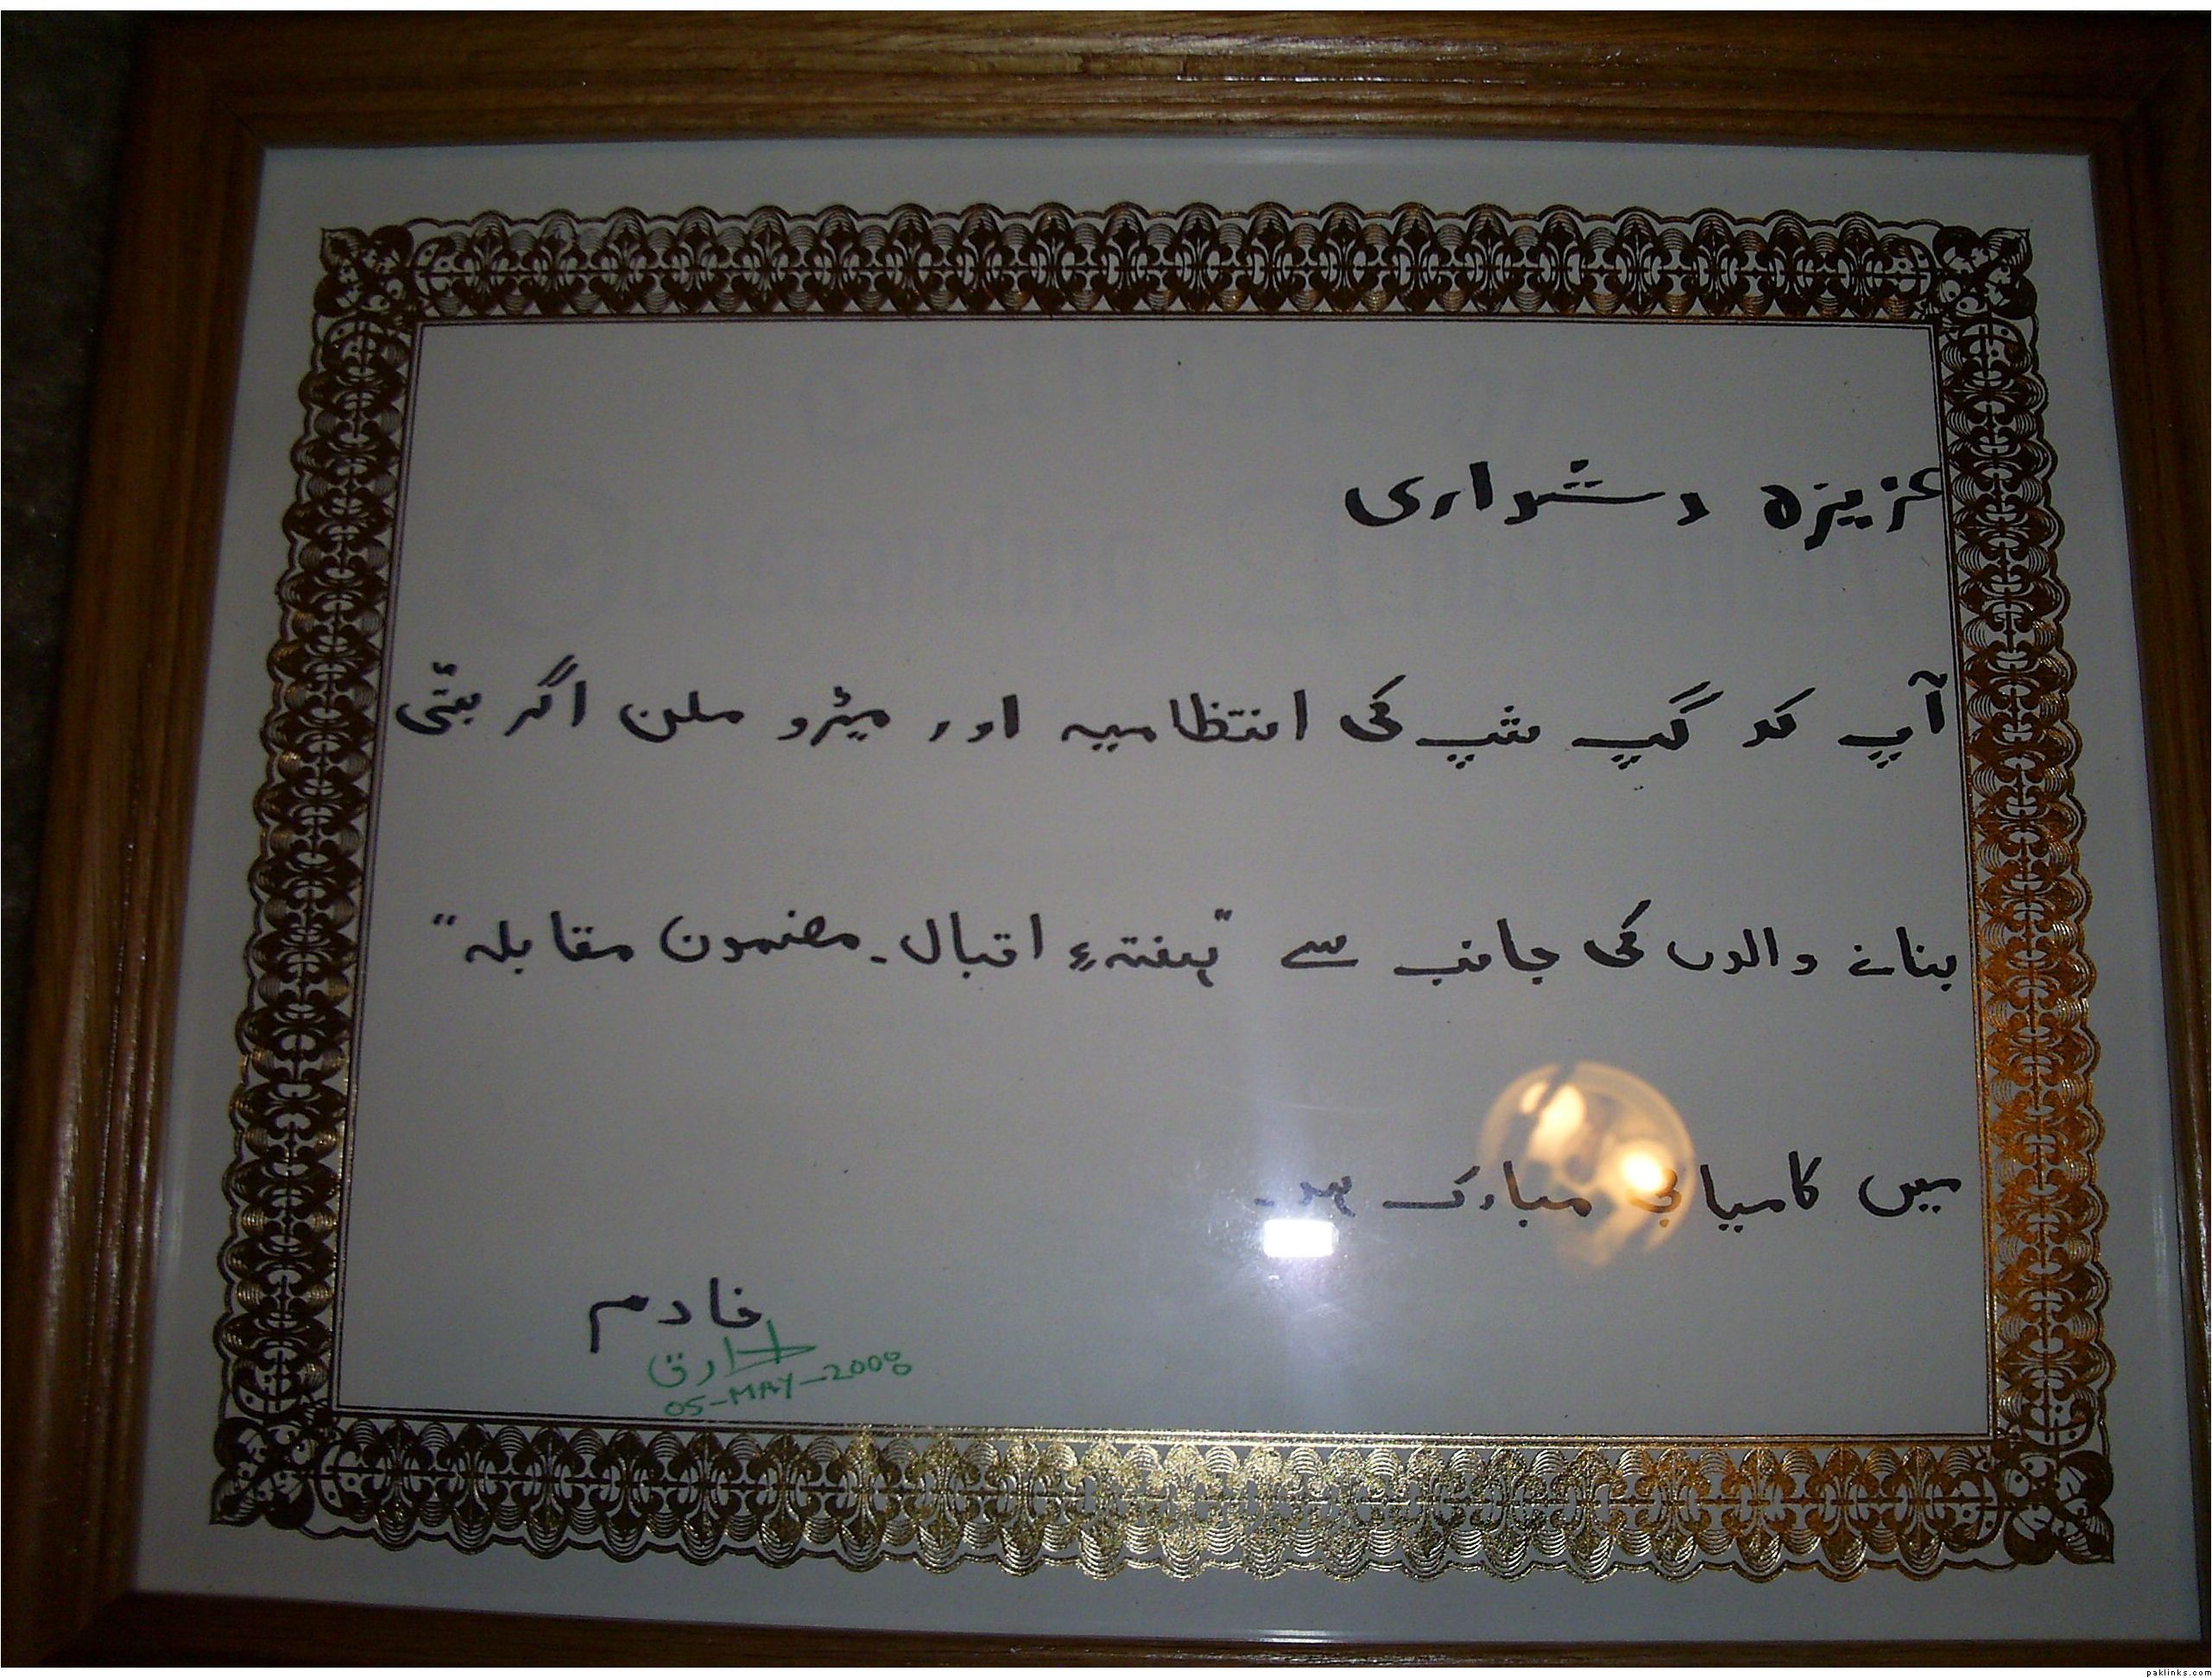 عزیزہ دشواری
آپ کو گپ شپ کی انتظامیہ اور میٹرو ملن اگر بتّی
بنانے والوں کی جانب سے "ہفتۂ اقبال۔ مضمون مقابلہ"
میں کامیابی مبارک ہو۔
خادم
طارق
05-MAY-2008
paklinks.com